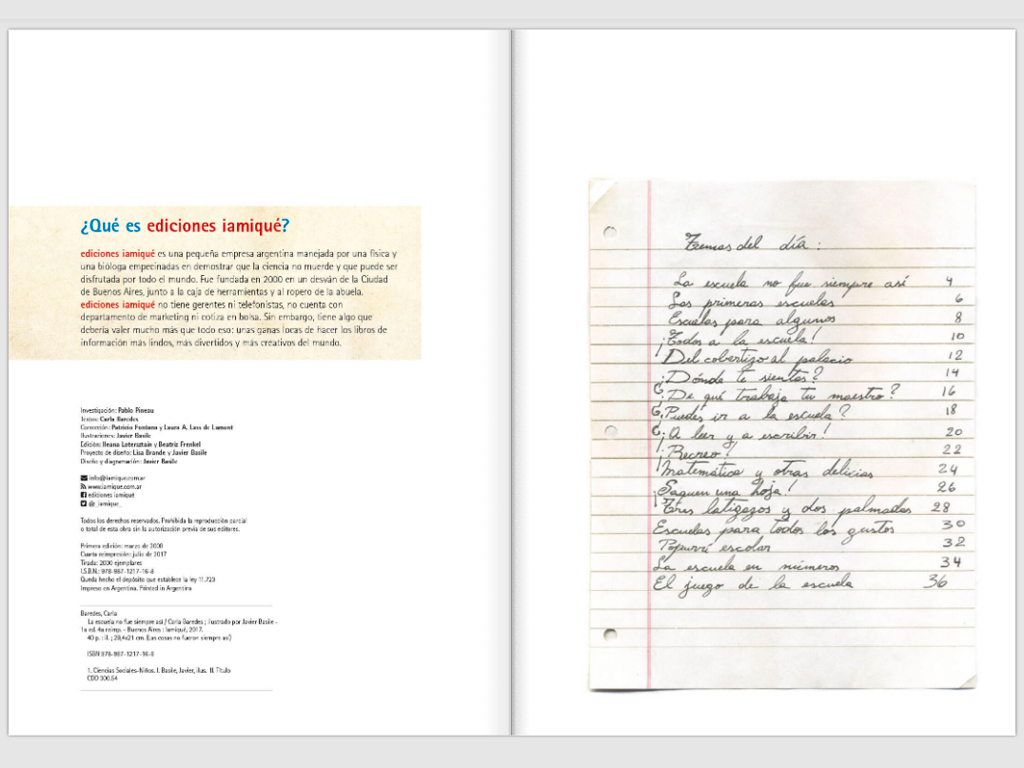 ¿Qué es ediciones iamiqué?
ediciones iamiqué es una pequeña empresa argentina manejada por una física y
una bióloga empecinadas en demostrar que la ciencia no muerde y que puede ser
disfrutada por todo el mundo. Fue fundada en 2000 en un desván de la Ciudad
de Buenos Aires, junto a la caja de herramientas y al ropero de la abuela.
ediciones iamiqué no tiene gerentes ni telefonistas, no cuenta con
departamento de marketing ni cotiza en bolsa. Sin embargo, tiene algo que
debería valer mucho más que todo eso: unas ganas locas de hacer los libros de
información más lindos, más divertidos y más creativos del mundo.
Investigación: Pablo Pineau
Textos: Carla Baredes
Corrección: Patricio Fontana y Laura A. Lass de Lamont
Ilustraciones: Javier Basile
Edición: Ileana Lotersztain y Beatriz Frenkel
Proyecto de diseño: Lisa Brande y Javier Basile
Diseño y diagramación: Javier Basile
info@iamique.com.ar
www.iamique.com.ar
ediciones iamiqué
@_iamique_
Todos los derechos reservados. Prohibida la reproducción parcial
o total de esta obra sin la autorización previa de sus editores.
Primera edición: marzo de 2008
Cuarta reimpresión: julio de 2017
Tirada: 2000 ejemplares
I.S.B.N.: 978-987-1217-16-8
Queda hecho el depósito que establece la ley 11.723
Impreso en Argentina. Printed in Argentina
Baredes, Carla
La escuela no fue siempre así / Carla Baredes ; ilustrado por Javier Basile -
1a ed. 4a reimp. - Buenos Aires : Iamiqué, 2017.
40 p. : il. ; 20,4x21 cm. (Las cosas no fueron siempre así)
ISBN 978-987-1217-16-8
1. Ciencias Sociales-Niños. I. Basile, Javier, ilus. II. Título
CDD 300.54
Temas del día :
La escuela no fue siempre así 4
Las primeras escuelas 6
Escuelas para algunos 8
¡Todos a la escuela! 10
Del cobertizo al palacio 12
¿Dónde te sientas? 14
¿De qué trabaja tu maestro? 16
¿Puedes ir a la escuela? 18
¡A leer y a escribir! 20
¡Recreo! 22
Matemática y otras delicias 24
¡Saquen una hoja! 26
Tres latigazos y dos palmadas 28
Escuelas para todos los gustos 30
Popurrí escolar 32
La escuela en números 34
El juego de la escuela 36